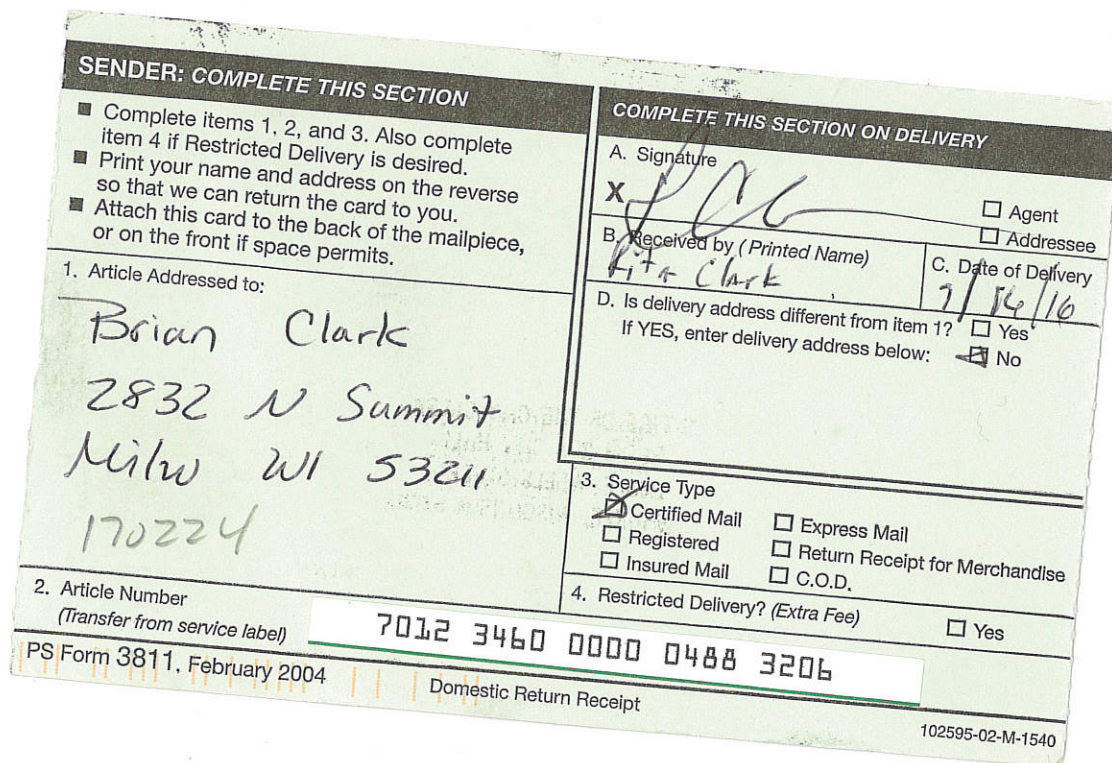 SENDER: COMPLETE THIS SECTION
■ Complete items 1, 2, and 3. Also complete
item 4 if Restricted Delivery is desired.
■ Print your name and address on the reverse
so that we can return the card to you.
■ Attach this card to the back of the mailpiece,
or on the front if space permits.
1. Article Addressed to:
Brian Clark
2832 N Summit
Milw WI 53211
170224
2. Article Number
(Transfer from service label)
7012 3460 0000 0488 3206
COMPLETE THIS SECTION ON DELIVERY
A. Signature
X
☐ Agent
☐ Addressee
B. Received by (Printed Name)
Rita Clark
C. Date of Delivery
7/16/16
D. Is delivery address different from item 1? ☐ Yes
If YES, enter delivery address below: ☒ No
3. Service Type
☒ Certified Mail ☐ Express Mail
☐ Registered ☐ Return Receipt for Merchandise
☐ Insured Mail ☐ C.O.D.
4. Restricted Delivery? (Extra Fee) ☐ Yes
PS Form 3811, February 2004
Domestic Return Receipt
102595-02-M-1540